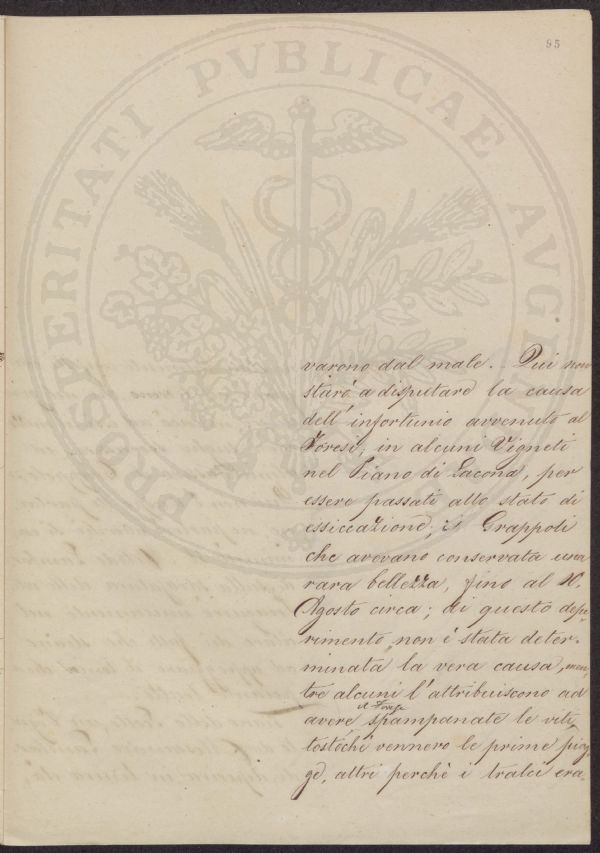 95
PROSPERITATI PVBLICAE AVGE
varono dal male. Qui non
starò a disputare la causa
dell' infortunio avvenuto al
Foresi, in alcuni Vigneti
nel Piano di Lacona, per
essere passati allo stato di
essiccazione, i Grappoli
che avevano conservata una
rara bellezza, fino al 10.
Agosto circa; di questo depe-
rimento, non è stata deter-
minata la vera causa, men-
tre alcuni l'attribuiscono ad
il Foresi
avere spampanate le viti,
tostochè vennero le prime piog-
ge, altri perchè i tralci era-